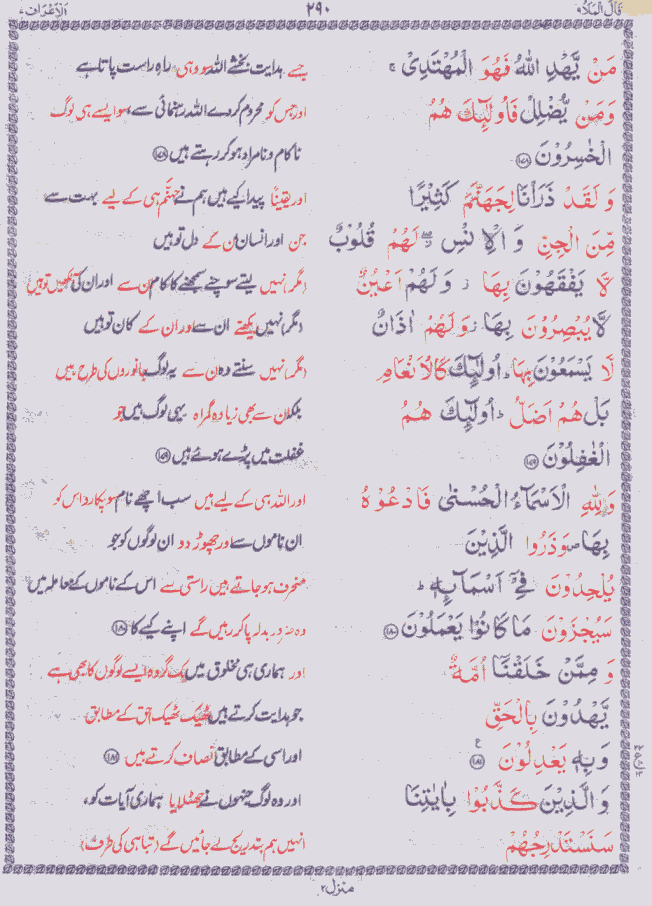 قَالَ الْمَلَاُ ۹ ۲۹۰ اَلْاَعْرَاف ۷
مَنْ يَّهْدِ اللّٰهُ فَهُوَ الْمُهْتَدِىْ ۚ جسے ہدایت بخشے اللہ سو وہی راہِ راست پاتا ہے
وَمَنْ يُّضْلِلْ فَاُولٰٓئِكَ هُمُ اور جس کو محروم کردے اللہ رہنمائی سے، سو ایسے ہی لوگ
الْخٰسِرُوْنَ ﴿۱۷۸﴾ ناکام و نامراد ہو کر رہتے ہیں ﴿۱۷۸﴾
وَ لَقَدْ ذَرَاْنَا لِجَهَنَّمَ كَثِيْرًا اور یقیناً پیدا کیے ہیں ہم نے جہنّم ہی کے لیے بہت سے
مِّنَ الْجِنِّ وَ الْاِنْسِ ۖ لَهُمْ قُلُوْبٌ جن اور انسان ان کے دل تو ہیں
لَّا يَفْقَهُوْنَ بِهَا ۡ وَ لَهُمْ اَعْيُنٌ (مگر) نہیں لیتے سوچنے سمجھنے کا کام ان سے اور ان کی آنکھیں تو ہیں
لَّا يُبْصِرُوْنَ بِهَا ۡ وَ لَهُمْ اٰذَانٌ (مگر) نہیں دیکھتے ان سے اور ان کے کان تو ہیں
لَّا يَسْمَعُوْنَ بِهَا ؕ اُولٰٓئِكَ كَالْاَنْعَامِ (مگر) نہیں سنتے وہ ان سے یہ لوگ جانوروں کی طرح ہیں
بَلْ هُمْ اَضَلُّ ؕ اُولٰٓئِكَ هُمُ بلکہ ان سے بھی زیادہ گمراہ یہی لوگ ہیں جو
الْغٰفِلُوْنَ ﴿۱۷۹﴾ غفلت میں پڑے ہوئے ہیں ﴿۱۷۹﴾
وَ لِلّٰهِ الْاَسْمَآءُ الْحُسْنٰى فَادْعُوْهُ اور اللہ ہی کے لیے ہیں سب اچھے نام سو پکارو اس کو
بِهَا ۖ وَذَرُوا الَّذِيْنَ ان ناموں سے اور چھوڑ دو ان لوگوں کو جو
يُلْحِدُوْنَ فِىْٓ اَسْمَآئِهٖ ؕ منحرف ہوجاتے ہیں راستی سے اس کے ناموں کے معاملہ میں
سَيُجْزَوْنَ مَا كَانُوْا يَعْمَلُوْنَ ﴿۱۸۰﴾ وہ ضرور بدلہ پاکر رہیں گے اپنے کیے کا ﴿۱۸۰﴾
وَ مِمَّنْ خَلَقْنَآ اُمَّةٌ اور ہماری ہی مخلوق میں ایک گروہ ایسے لوگوں کا بھی ہے
يَّهْدُوْنَ بِالْحَقِّ جو ہدایت کرتے ہیں ٹھیک ٹھیک حق کے مطابق
وَبِهٖ يَعْدِلُوْنَ ﴿۱۸۱﴾ ع اور اسی کے مطابق انصاف کرتے ہیں ﴿۱۸۱﴾
وَ الَّذِيْنَ كَذَّبُوْا بِاٰيٰتِنَا اور وہ لوگ جنہوں نے جھٹلایا ہماری آیات کو،
سَنَسْتَدْرِجُهُمْ انہیں ہم بتدریج لے جائیں گے (تباہی کی طرف)
منزل۲